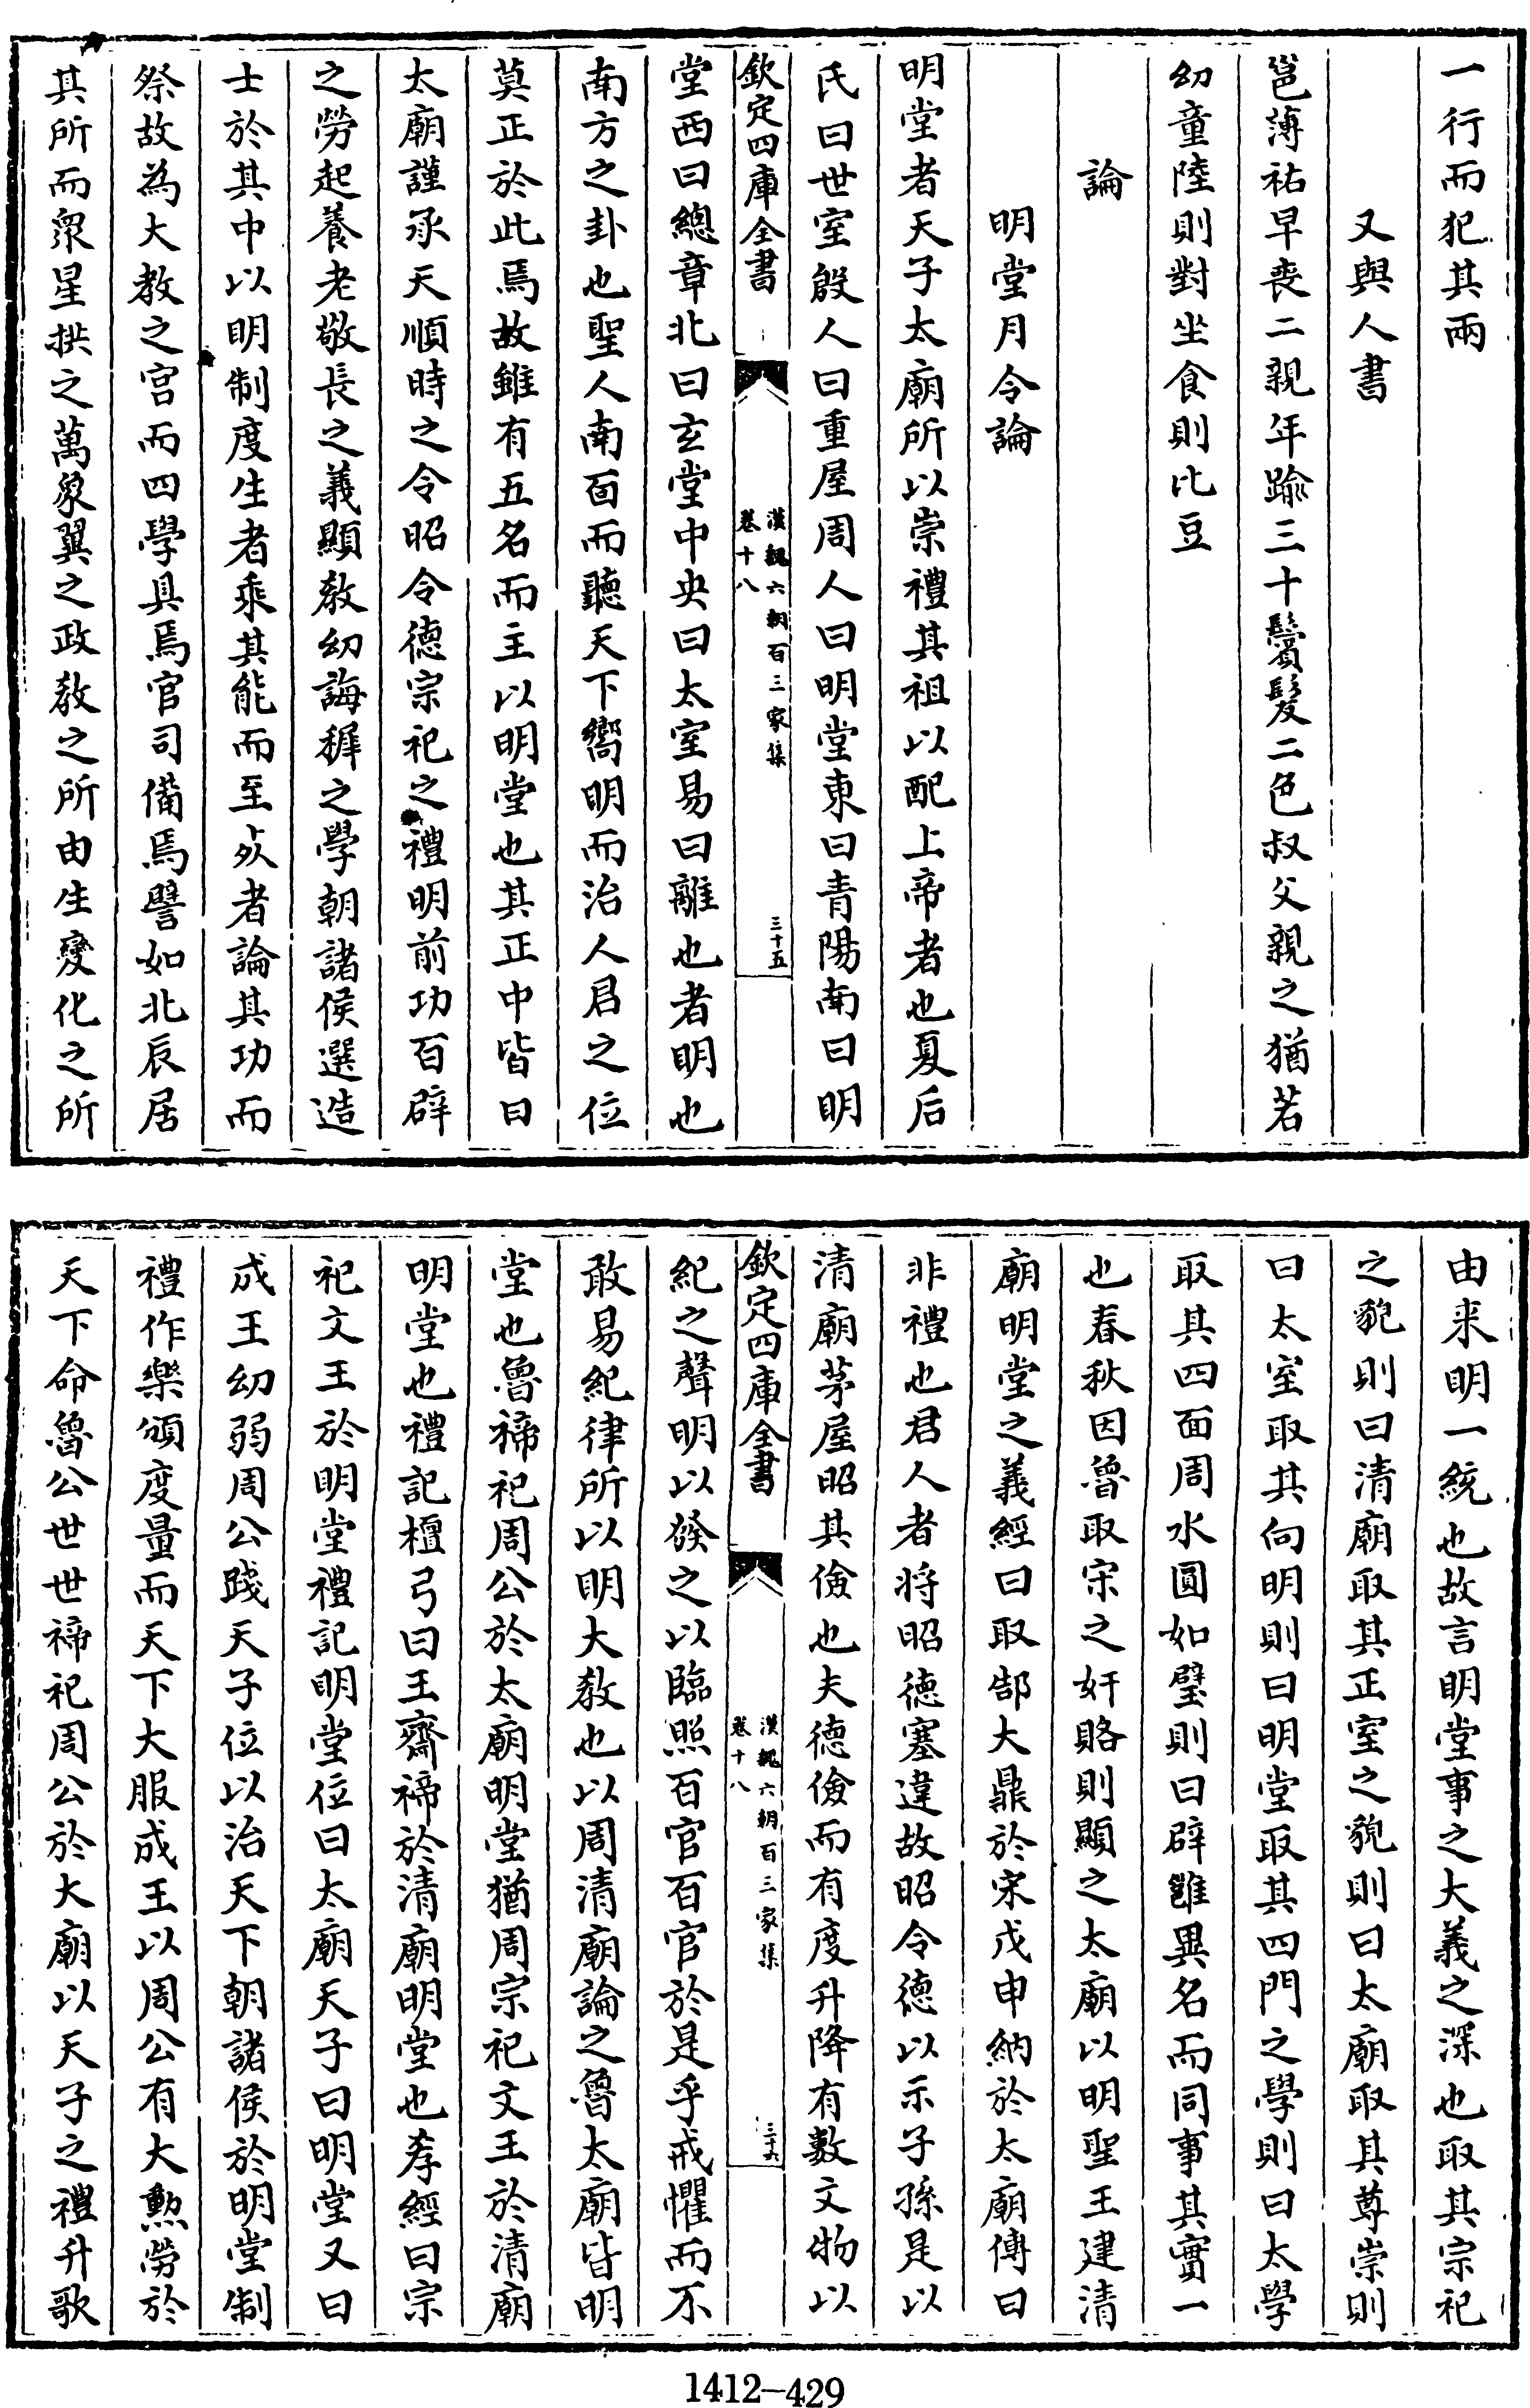 一行而犯其兩
又與人書
邕薄祐早喪二親年踰三十鬢髮二色叔父親之猶若
幼童陸則對坐食則比豆
論
明堂月令論
明堂者天子太廟所以崇禮其祖以配上帝者也夏后
氏曰世室殷人曰重屋周人曰明堂東曰青陽南曰明
欽定四庫全書
漢魏六朝百三家集
卷十八
三十五
堂西曰總章北曰玄堂中央曰太室易曰離也者明也
南方之卦也聖人南面而聽天下嚮明而治人君之位
莫正於此焉故雖有五名而主以明堂也其正中皆曰
太廟謹承天順時之令昭令德宗祀之禮明前功百辟
之勞起養老敬長之義顯教幼誨穉之學朝諸侯選造
士於其中以明制度生者乘其能而至死者論其功而
祭故為大教之宫而四學具焉官司備焉譬如北辰居
其所而衆星拱之萬象翼之政教之所由生變化之所
由来明一統也故言明堂事之大義之深也取其宗祀
之貌則曰清廟取其正室之貌則曰太廟取其尊崇則
曰太室取其向明則曰明堂取其四門之學則曰太學
取其四面周水圓如璧則曰辟雖異名而同事其實一
也春秋因魯取宋之奸賂則顯之太廟以明聖王建清
廟明堂之義經曰取郜大鼎於宋戊申納於太廟傳曰
非禮也君人者将昭德塞違故昭令德以示子孫是以
清廟茅屋昭其儉也夫德儉而有度升降有數文物以
欽定四庫全書
漢魏六朝百三家集
卷十八
三十六
紀之聲明以發之以臨照百官百官於是乎戒懼而不
敢易紀律所以明大教也以周清廟論之魯太廟皆明
堂也魯禘祀周公於太廟明堂猶周宗祀文王於清廟
明堂也禮記檀弓曰王齋禘於清廟明堂也孝經曰宗
祀文王於明堂禮記明堂位曰太廟天子曰明堂又曰
成王幼弱周公踐天子位以治天下朝諸侯於明堂制
禮作樂頒度量而天下大服成王以周公有大勲勞於
天下命魯公世世禘祀周公於大廟以天子之禮升歌
1412—429